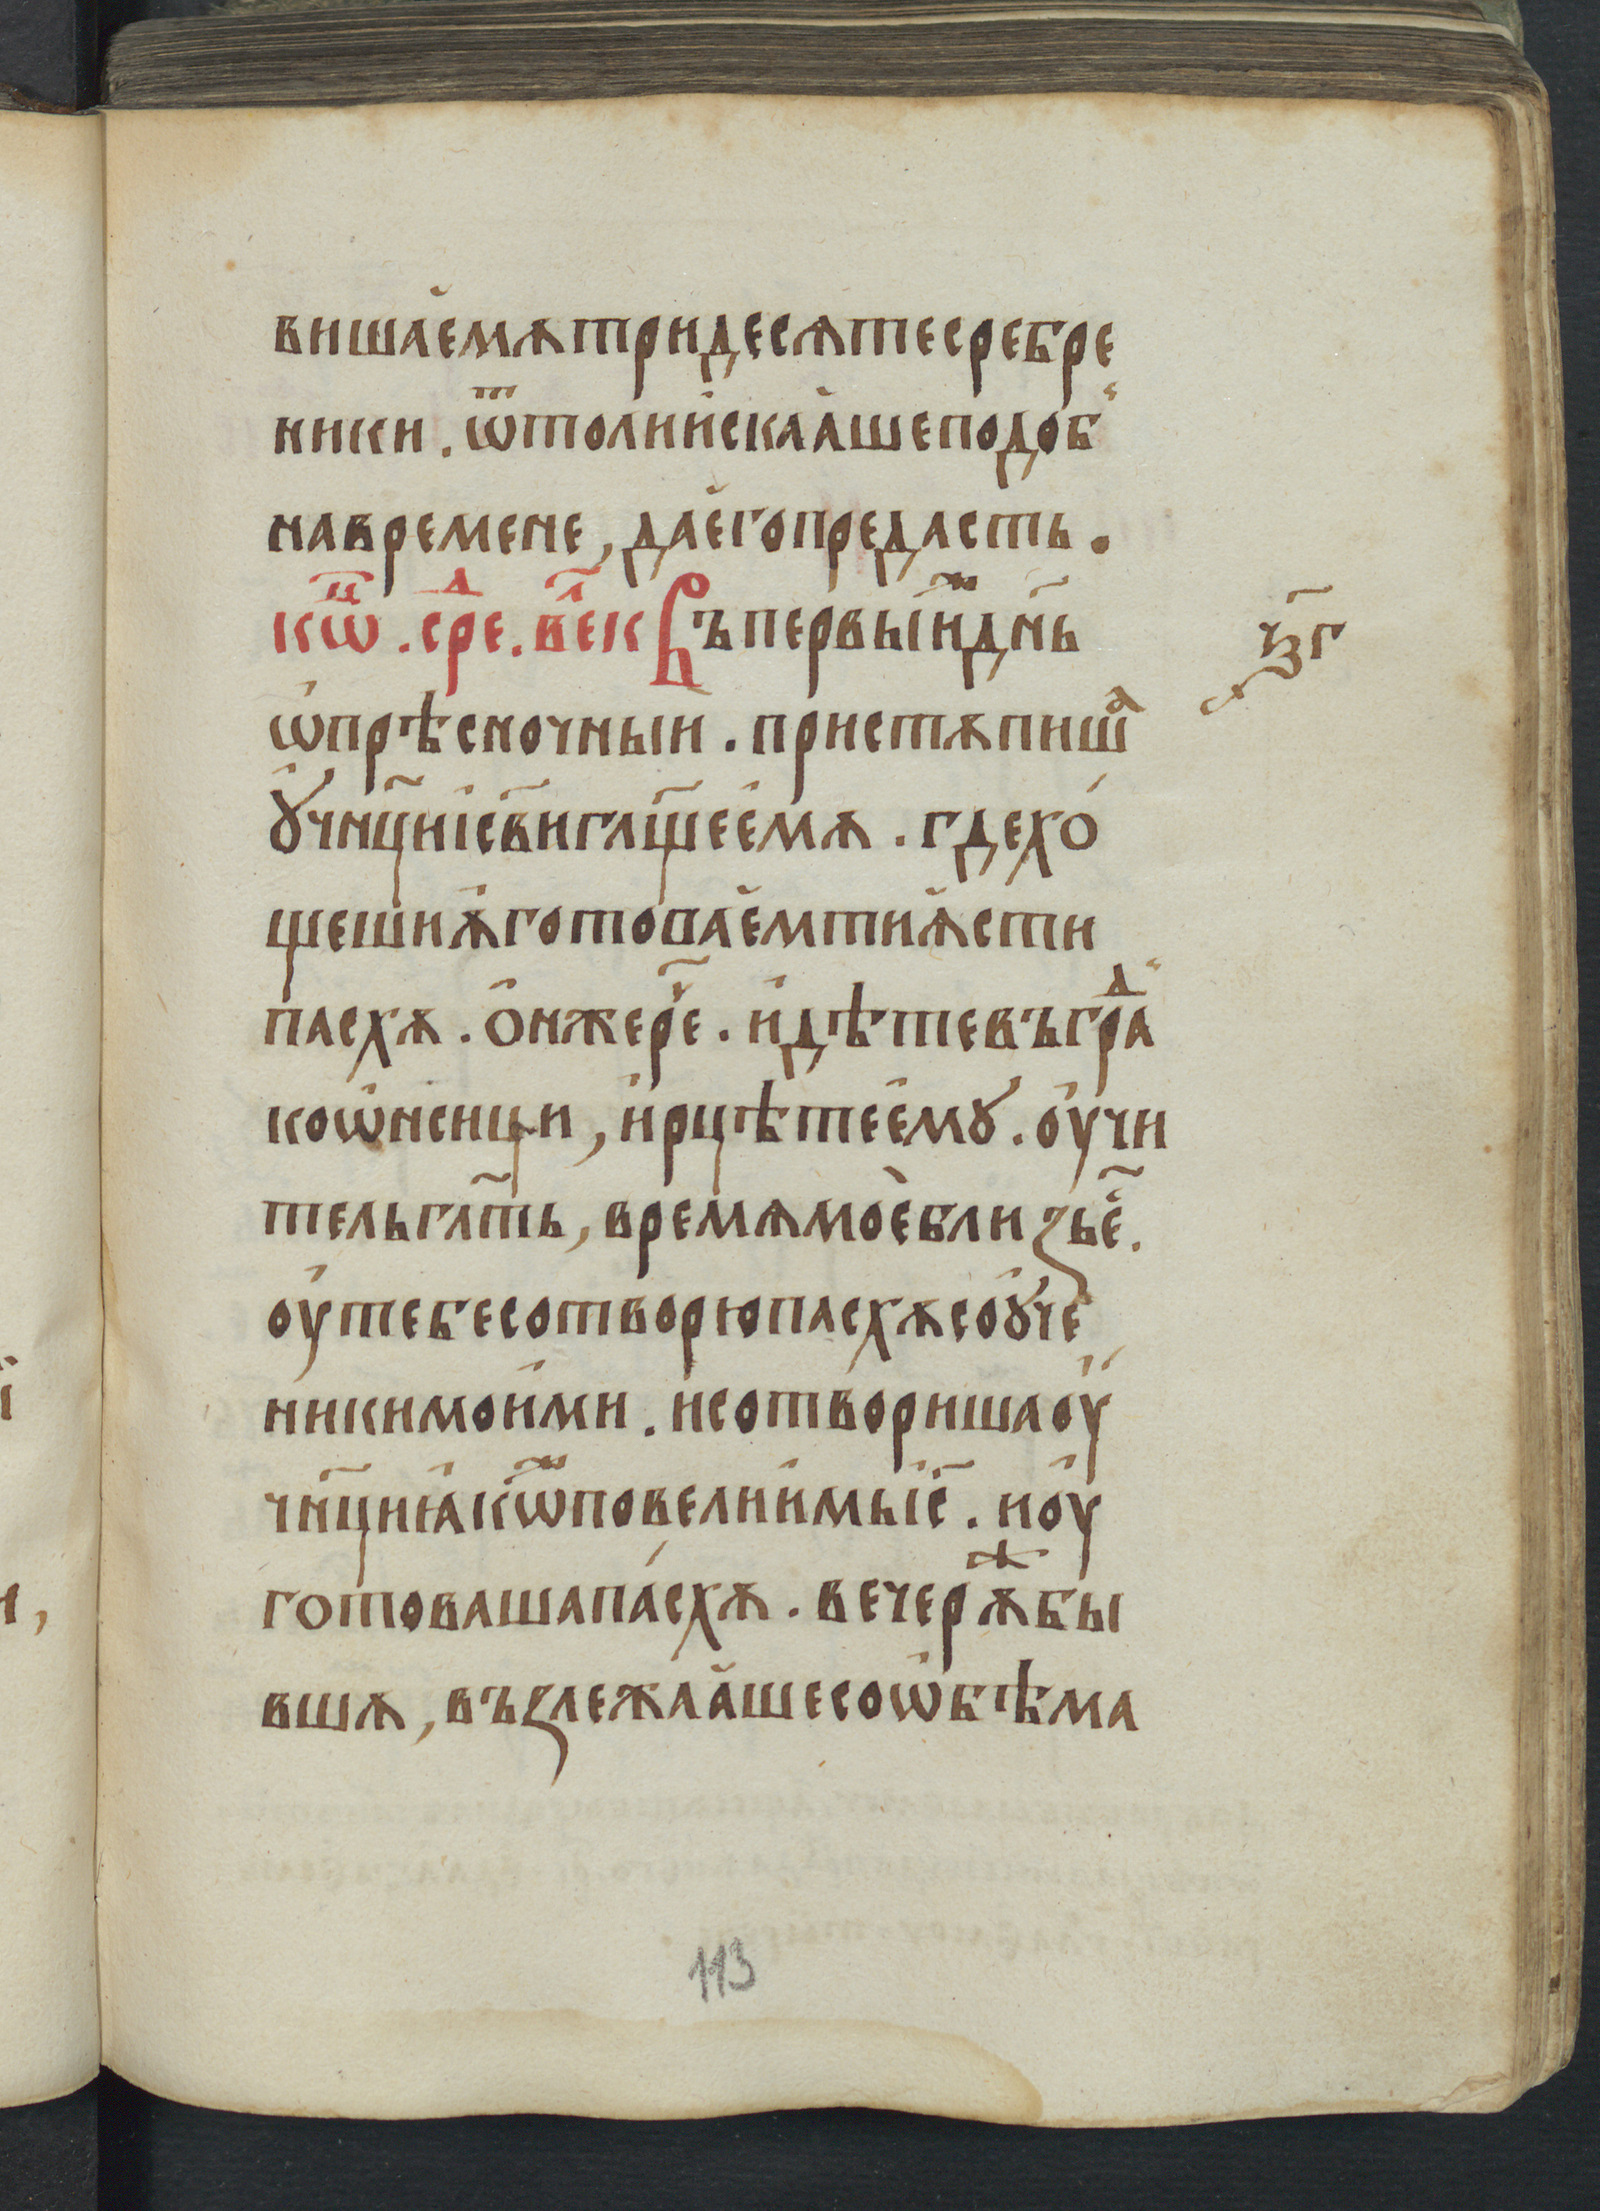 вишае҆мѫтридесѧтесребре
ники . ѿтолии҆скаа҆шеподоб
навремене , дае҆гопредасть .
кѿц . срѣ҇д . в҃ек Въпервыи҆дн҃ь
ѯ҃г
ѡ҆прѣсночныи . пристѫпишѧ
ꙋ҆чнц҃иі҆с҃вигл҃щее҆мѫ . гдехо́
щешиѫ҆готовае҆мтиꙗ҆сти
пасхѫ . ѻ҆нжере҃ч . и҆дѣтевъградⷣ
коѡ҆нсици , и҆рцѣтее҆мꙋ . оу҆чи
тельгл҃ть , времѧмое҆близье҃ .
оу҆тебесотворюпасхѫсоꙋ҆че
никимои҆ми . и҆сотворишаоу҆
чн҃циꙗ҆кѿповелии҆мыі҆с҃ . и҆оу҆
готовашапа́схѫ . вечерѫжебы
вшѫ , възлежаа҆шесоѡ҆бѣма
113